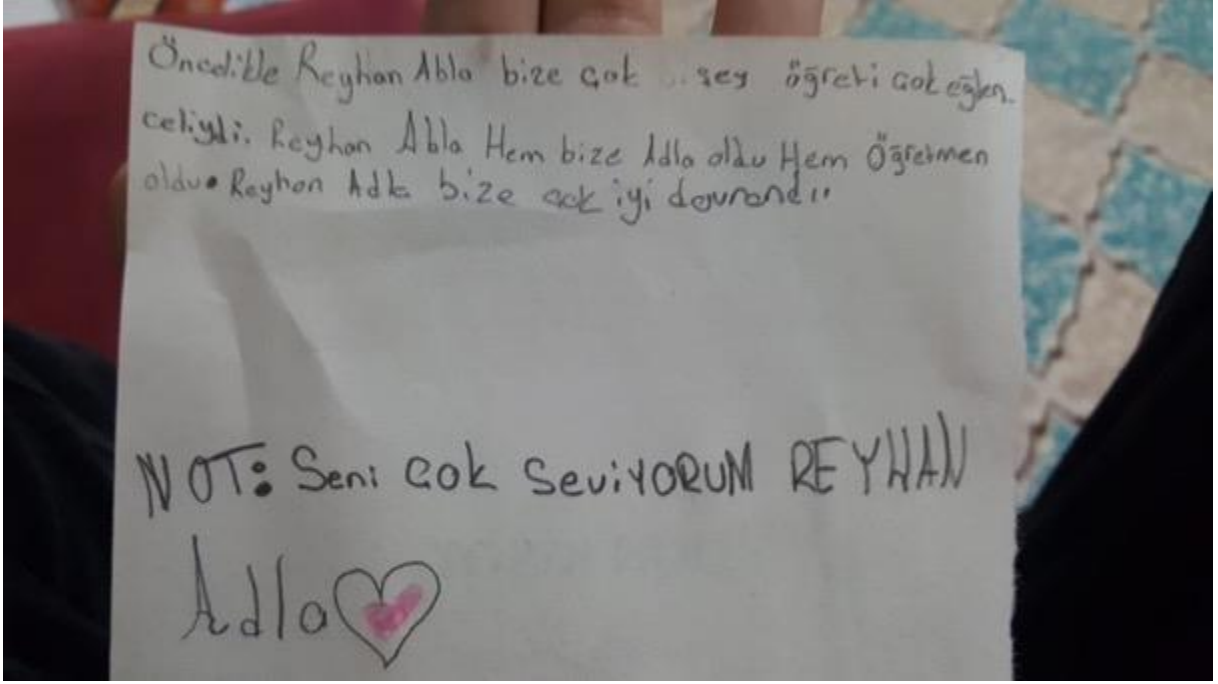 Öncelikle Reyhan Abla bize çok şey öğreti çok eğlen
celiydi. Reyhan Abla Hem bize Adla oldu Hem Öğretmen
oldu. Reyhan Adla bize çok iyi davrandı.
NOT: Seni çok SeviYORUM REYHAN
Adla